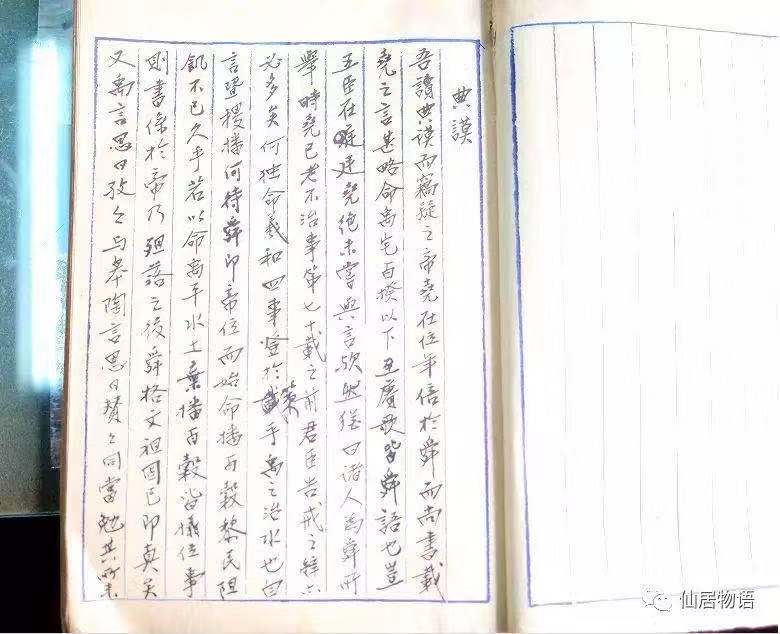 典謨
吾讀典謨而竊疑之帝堯在位年倍於舜而尚書載
堯之言甚略命禹宅百揆以下至賡歌皆舜語也豈
五臣在唐廷堯絕未嘗與言歟縱曰諸人為舜所
舉時堯已老不治事第七十載之前君臣告戒之辭亦
必多矣何獨命羲和四事登於策乎禹之治水也曰
言暨稷播何待舜即帝位而始命播百穀黎民阻
飢不已久乎若以命禹平水土棄播百穀皆攝位事
則書係於帝乃殂落之後舜格文祖固已即真矣
又禹言思日孜々與皋陶言思日贊々同當勉其所未
仙居物语